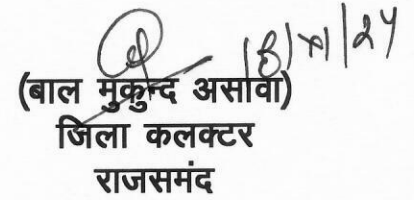 18/XI/24
(बाल मुकुन्द असावा)
जिला कलक्टर
राजसमंद